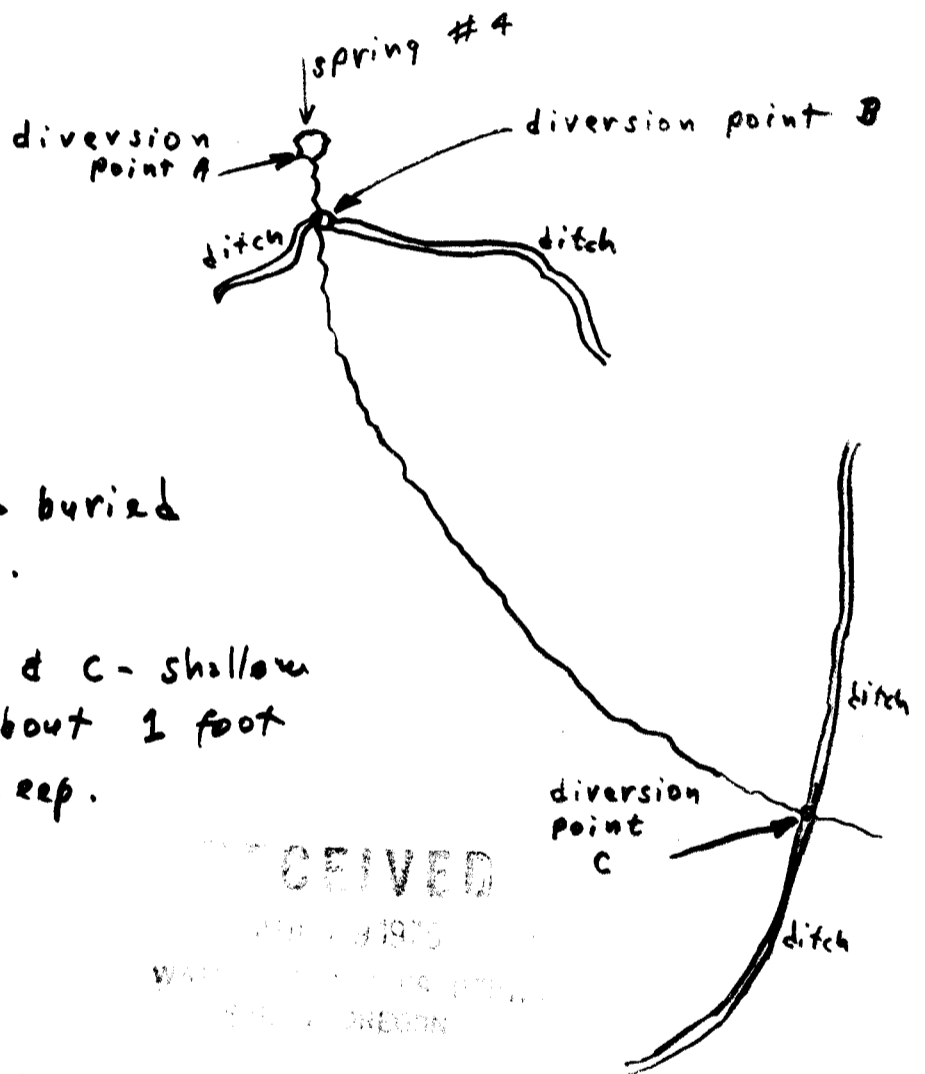 spring #4
diversion
point A
diversion point B
ditch
ditch
buried
.
& C - shallow
bout 1 foot
eep.
ditch
diversion
point
C
CEIVED
ditch
OREGON